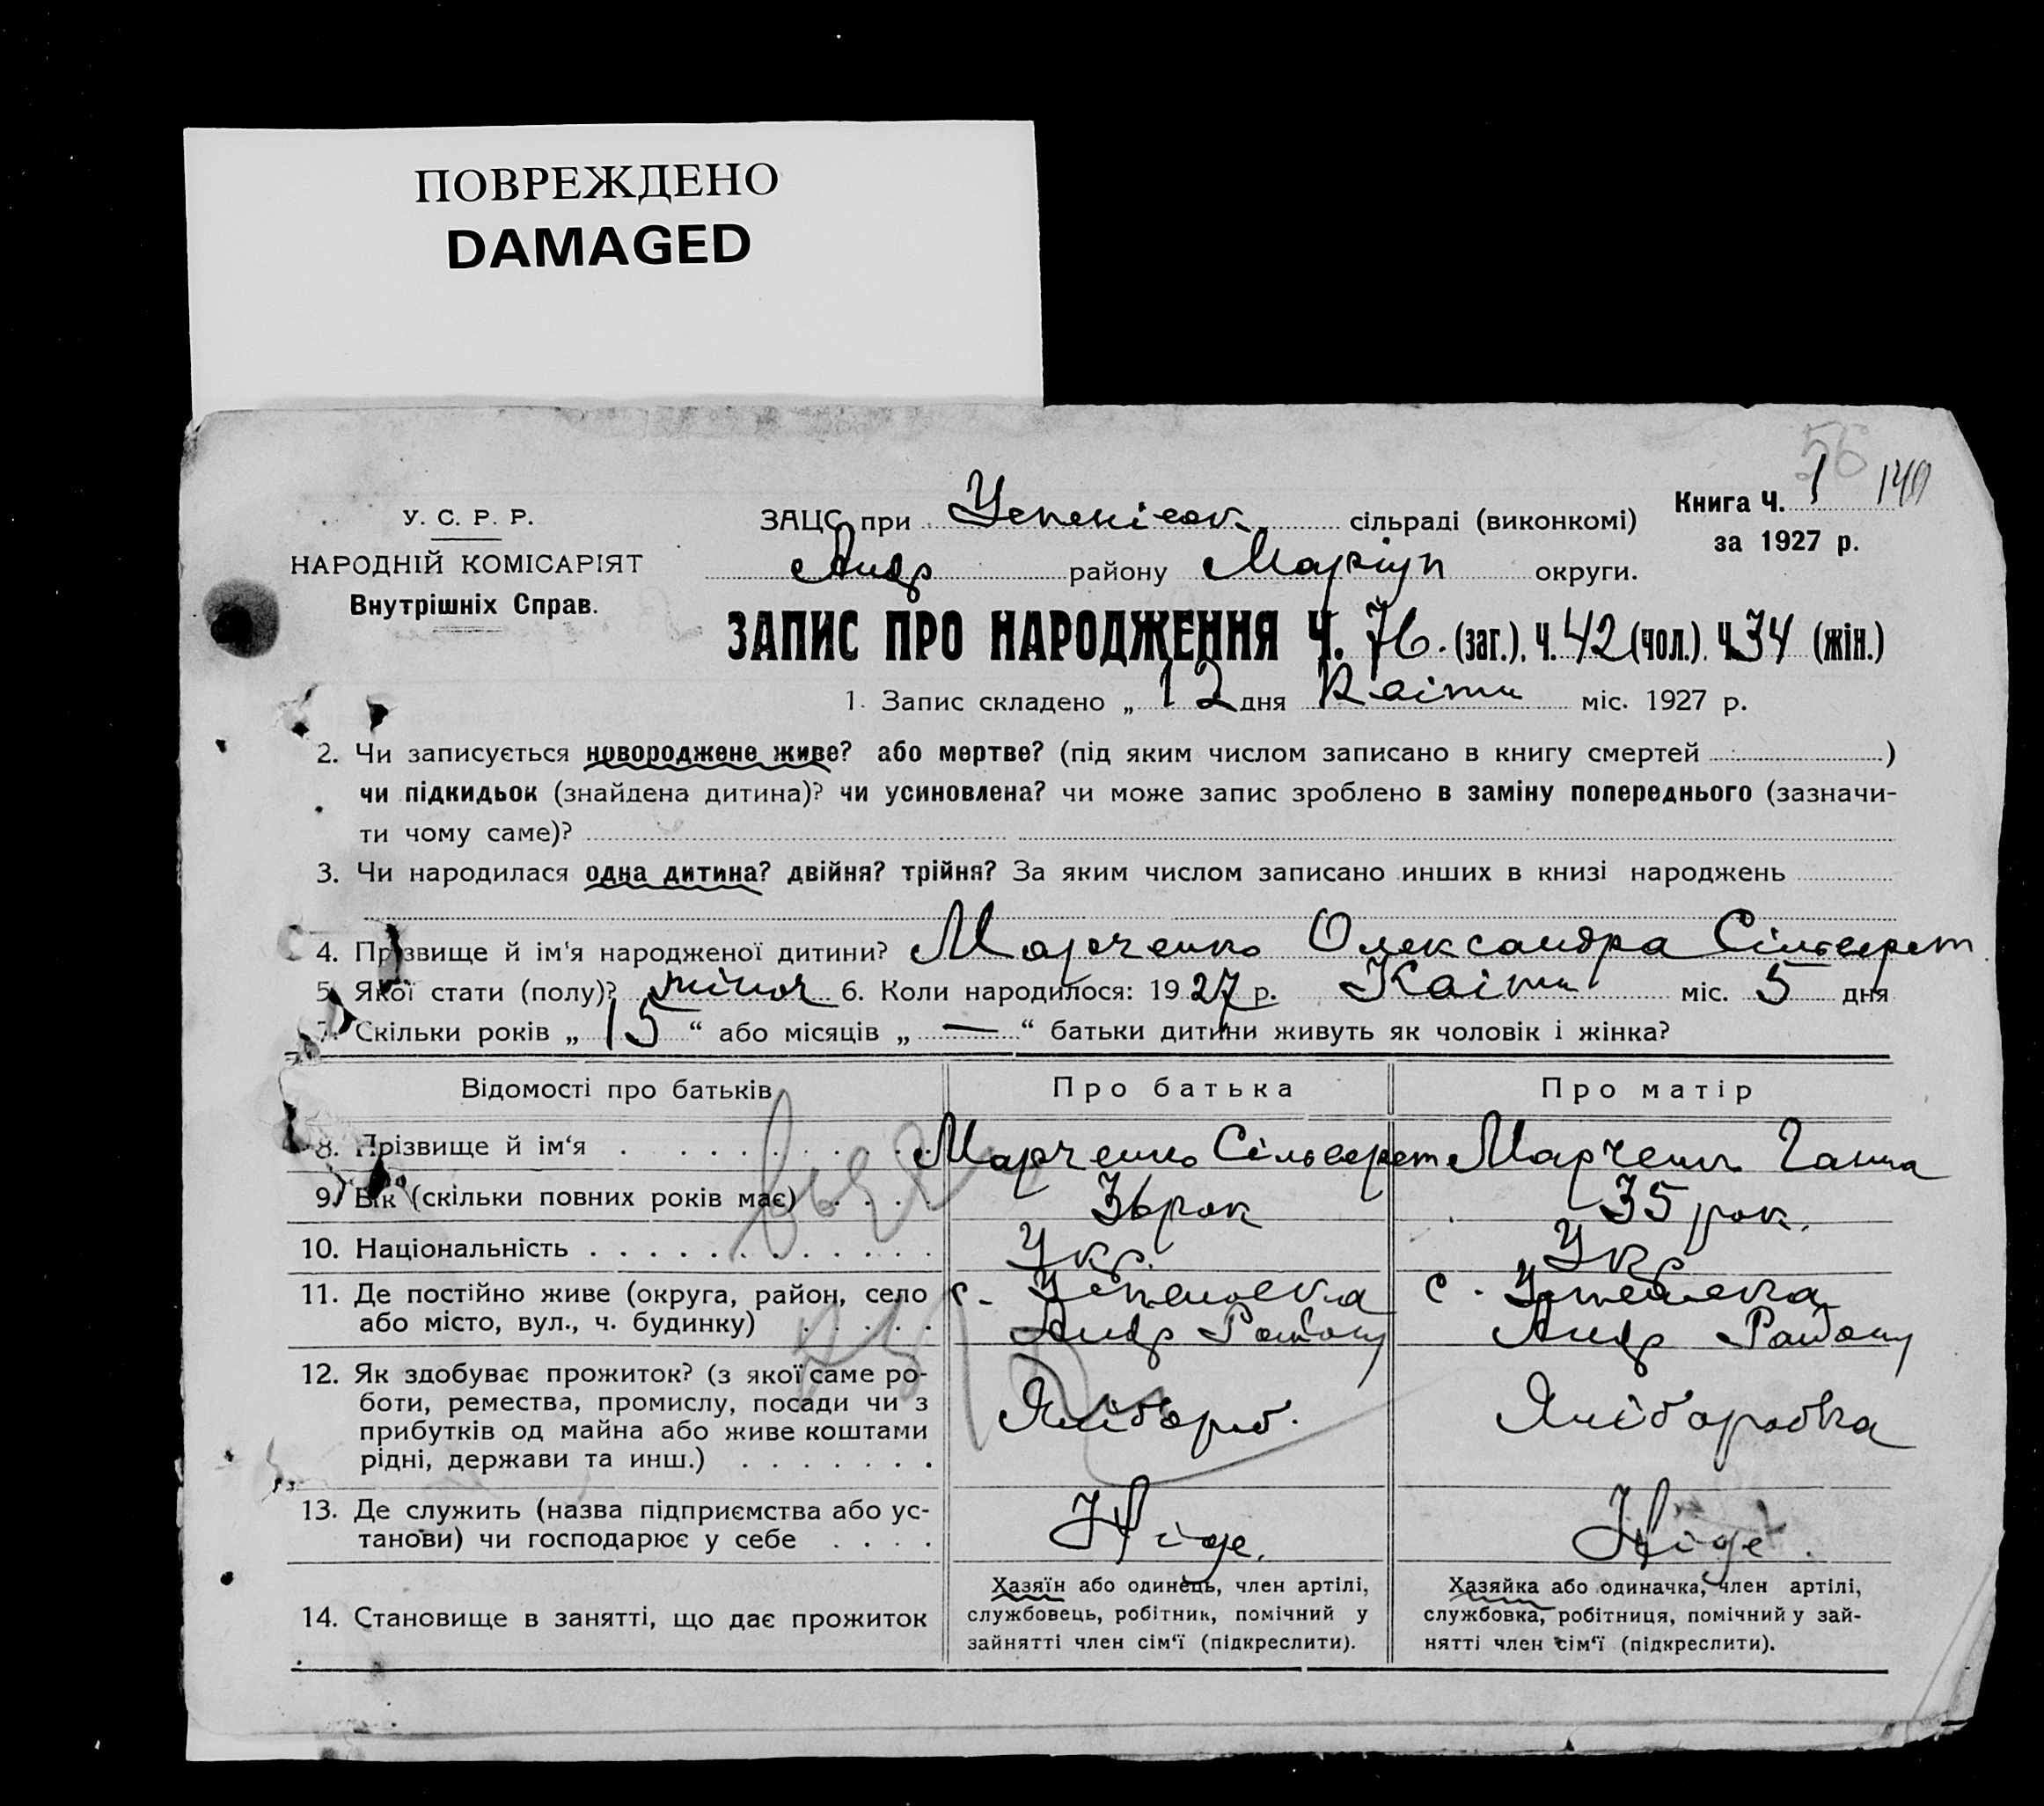 ПОВРЕЖДЕНО
DAMAGED
56
Книга Ч. 1 140
за 1927 р.
У. С. Р. Р.
НАРОДНІЙ КОМІСАРІЯТ
Внутрішніх Справ.
ЗАЦС при Успенівск. сільраді (виконкомі)
Андр району Маріуп округи.
ЗАПИС ПРО НАРОДЖЕННЯ Ч. 76. (заг.). Ч. 42 (чол.). Ч. 34 (жін.)
1. Запис складено „ 12 дня Квітн міс. 1927 р.
2. Чи записується новороджене живе? або мертве? (під яким числом записано в книгу смертей )
чи підкидьок (знайдена дитина)? чи усиновлена? чи може запис зроблено в заміну попереднього (зазначи-
ти чому саме)?
3. Чи народилася одна дитина? двійня? трійня? За яким числом записано инших в книзі народжень
4. Прізвище й ім'я народженої дитини? Марченко Олександра Сільверст
5. Якої стати (полу)? жіноч 6. Коли народилося: 1927 р. Квітн міс. 5 дня
7. Скільки років „ 15 “ або місяців „ — “ батьки дитини живуть як чоловік і жінка?
Відомості про батьків
Про батька
Про матір
8. Прізвище й ім‘я
Марченко Сільверст
Марченк Ганна
9. Вік (скільки повних років має)
36 рок
35 рок.
10. Національність
Укр.
Укр
11. Де постійно живе (округа, район, село
або місто, вул., ч. будинку)
с. Успеновка
Андр Району
с. Успеновка
Андр Району
12. Як здобуває прожиток? (з якої саме ро-
боти, ремества, промислу, посади чи з
прибутків од майна або живе коштами
рідні, держави та инш.)
Хлібороб.
Хліборобка
13. Де служить (назва підприємства або ус-
танови) чи господарює у себе
Ніде.
Ніде.
14. Становище в занятті, що дає прожиток
Хазяїн або одинець, член артілі,
службовець, робітник, помічний у
зайнятті член сім‘ї (підкреслити).
Хазяйка або одиначка, член артілі,
службовка, робітниця, помічний у зай-
нятті член сім‘ї (підкреслити).